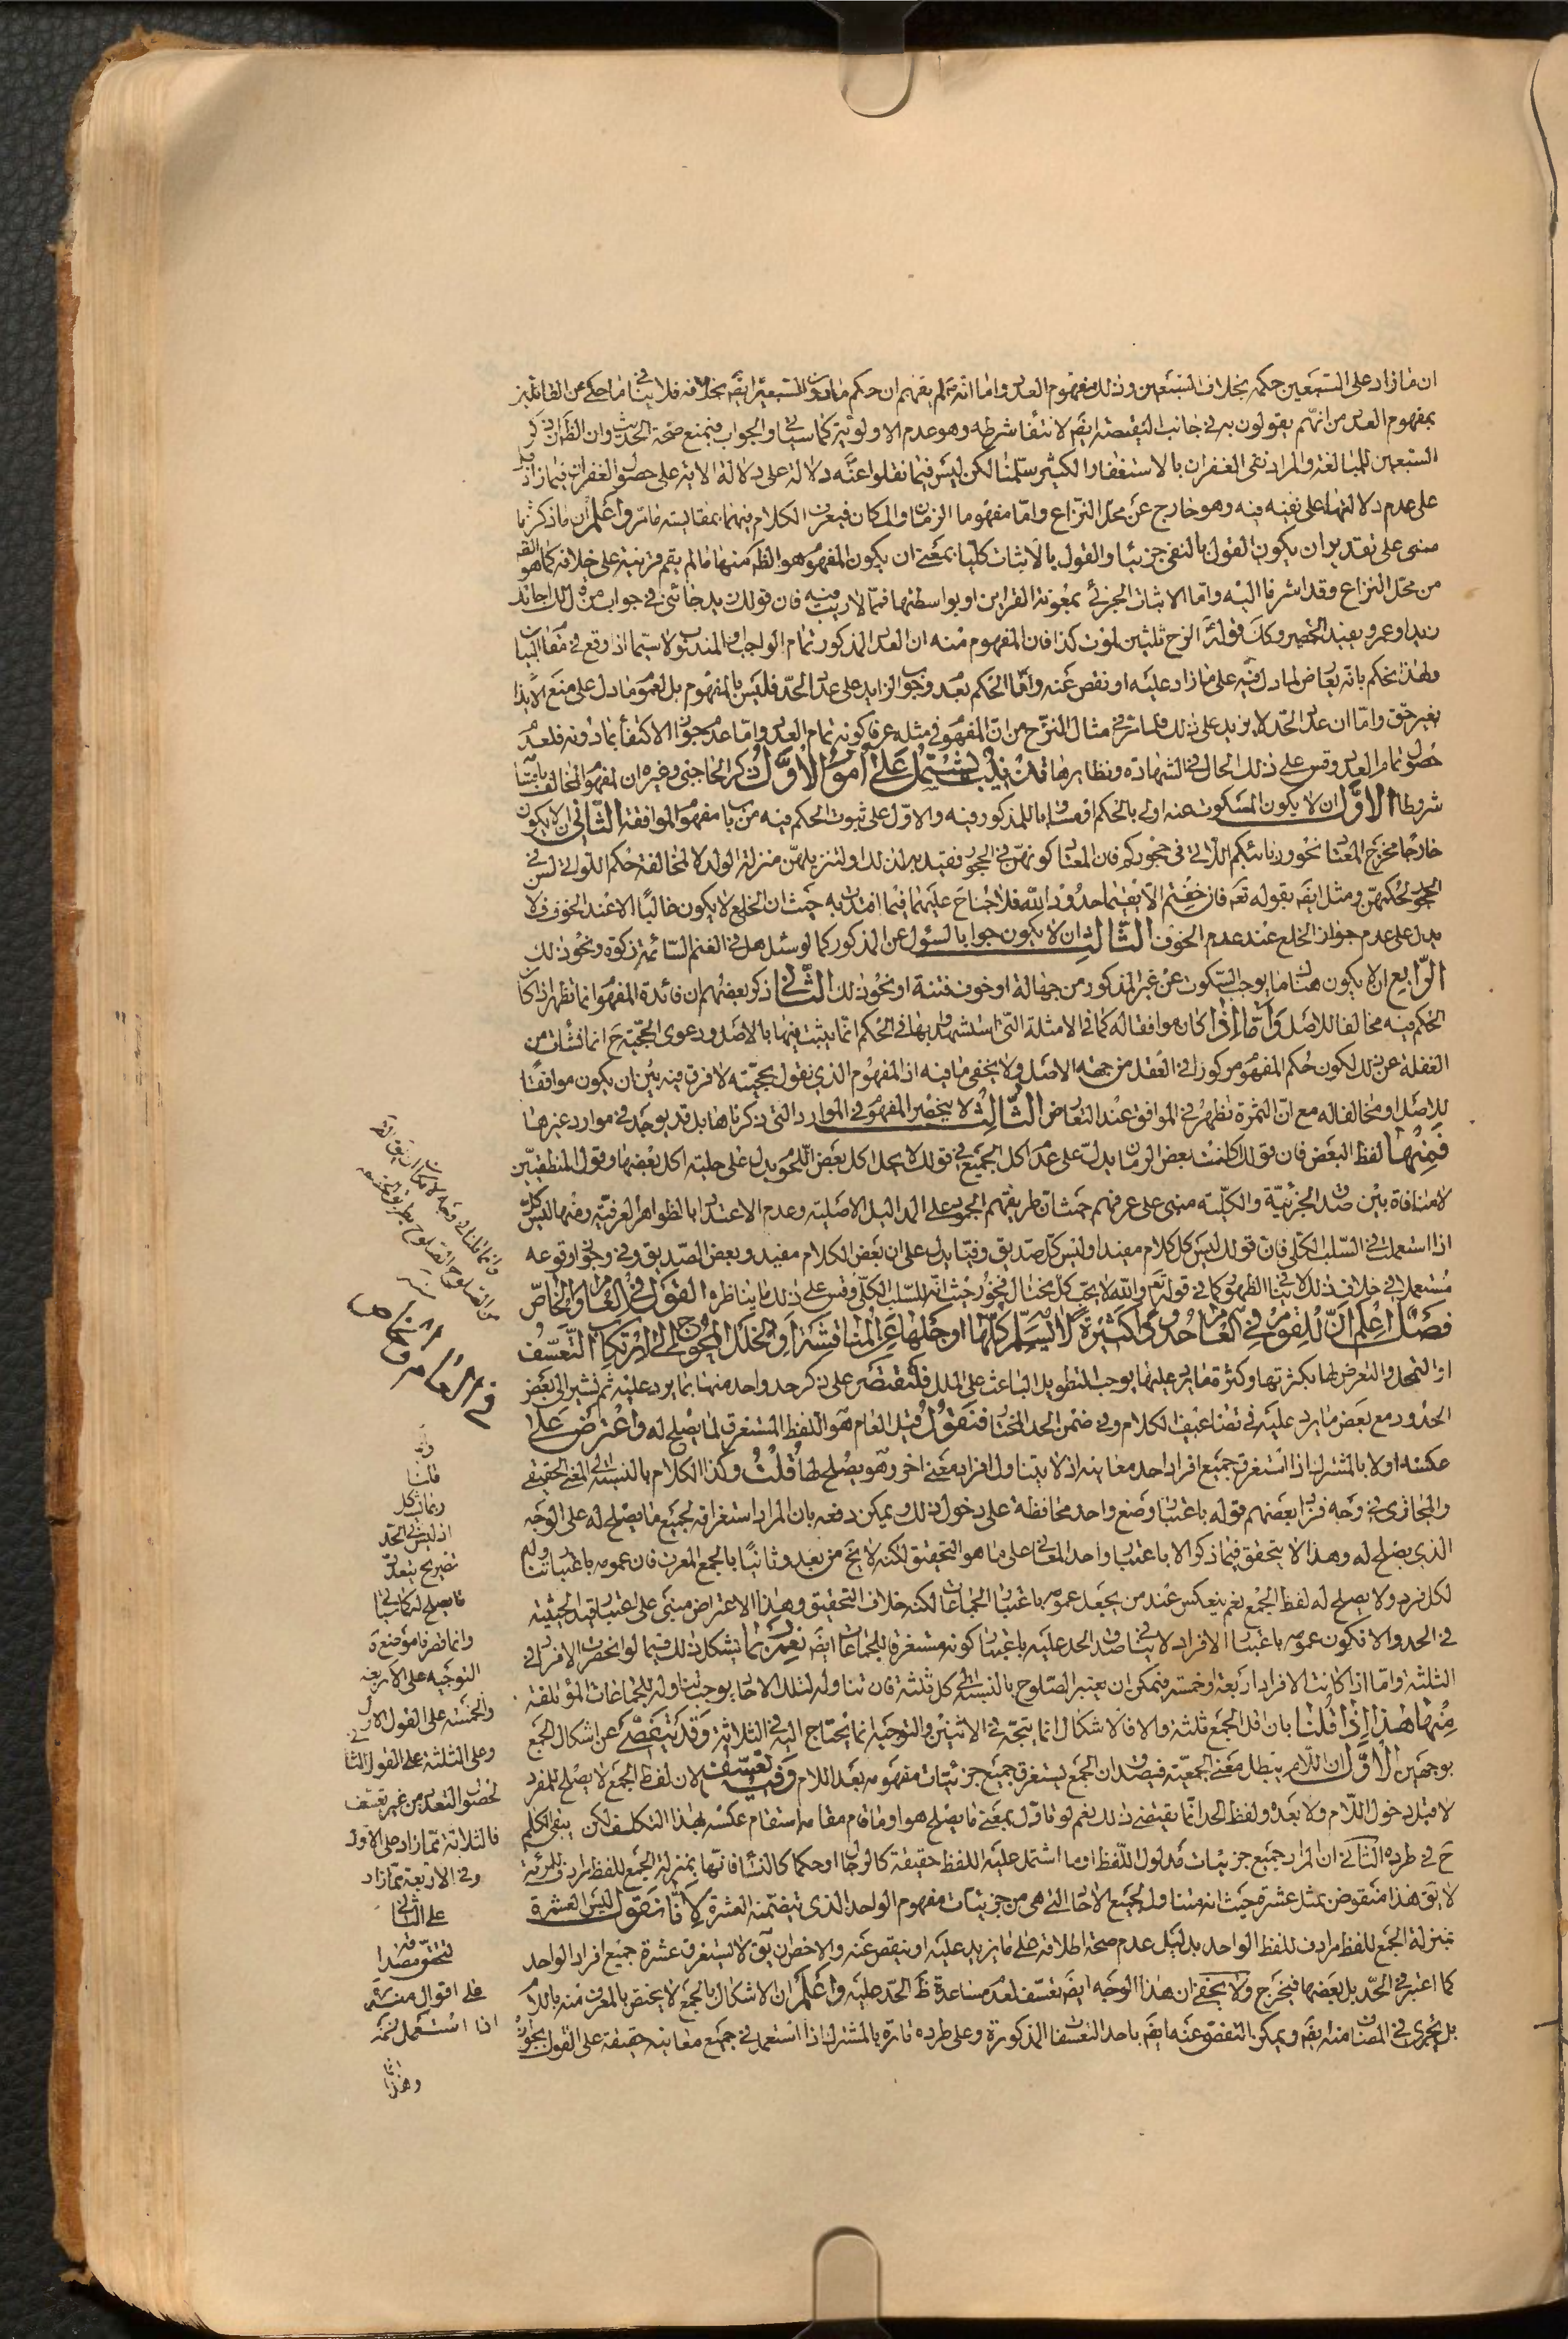 ان ما زاد على السبعين حكمه بخلاف السبعين وذلك مفهوم العدد واما انه صلم يفهم ان حكم مادون السبعين ايضا بخلافه فلا ينافي ما حكي عن القائلين
بمفهوم العدد من انهم يقولون به في جانب النقيصة ايضا لانتفاء شرطه وهو عدم الاولوية كما سياتي والجواب فبمنع صحة الحديث وان الظ ان ذكر
السبعين للمبالغة والمراد نفي الغفران بالاستغفار الكثير سلمنا لكن ليس فيما نقلوا عنه دلالة على دلالة الاية على حصول الغفران فيما زاد بل
على عدم دلالتها على نفيه فيه وهو خارج عن محل النزاع واما مفهوما الزمان والمكان فيعرف الكلام فيهما بمقايسة ما مر واعلم ان ما ذكرنا
مبنى على تقدير ان يكون القول بالنفي جزئيا والقول بالاثبات كليا بمعنى ان يكون المفهوم هو الظ منها ما لم يقم قرينة على خلافه كما هو
من محل النزاع وقد اشرنا اليه واما الاثبات الجزئي بمعونة القراين او بواسطتها فمما لا ريب فيه فان قولك زيد جائني في جواب من قال لك اجاءك
زيد او عمرو يفيد الحصر وكك قوله انزح ثلثين لموت كذا فان المفهوم منه ان العدد المذكور تمام الواجب او المندوب ولا سيما اذا وقع في مقام البيان
ولهذا نحكم بانه يعارض لما دل فيه على ما زاد عليه او نقص عنه واما الحكم بعدم وجوب الزايد على عدد الحد فليس بالمفهوم بل لعموم ما دل على منع الايذاء
بغير حق واما ان عدد الحد لا يزيد على ذلك فلما مر في مثال النزح من ان المفهوم في مثله عرفا كونه تمام العدد واما عدم جواز الاكتفاء بما دونه فلعدم
حصول تمام العدد وقس على ذلك الحال في الشهادة ونظايرها تذنيب يشتمل على امور الاول ذكر الحاجبي وغيره ان لمفهوم المخالف باقسامه
شروطا الاول ان لا يكون المسكوت عنه اولى بالحكم او مساويا للمذكور فيه والا دل على ثبوت الحكم فيه من باب مفهوم الموافقة الثاني ان لا يكون
خارجا مخرج المعتاد نحو وربائبكم اللاتي في حجوركم فان المعتاد كونهن في الحجور فقيد به لذلك او لتنزيلهن منزلة الولد لا لمخالفة حكم اللواتي لسن في
الحجور لحكمهن ومثل ايضا بقوله تع فان خفتم الا يقيما حدود الله فلا جناح عليهما فيما افتدت به حيث ان الخلع لا يكون غالبا الا عند الخوف فلا
يدل على عدم جواز الخلع عند عدم الخوف الثالث ان لا يكون جوابا لسؤل عن المذكور كما لو سئل هل في الغنم السائمة زكوة ونحو ذلك
الرابع ان لا يكون هناك ما يوجب السكوت عن غير المذكور من جهالة او خوف فتنة او نحو ذلك الثاني ذكر بعضهم ان فائدة المفهوم انما تظهر اذا كان
الحكم فيه مخالفا للاصل واما اذا كان موافقا له كما في الامثلة التي استشهدوا بها في الحكم انما يثبت فيها بالاصل ودعوى الحجية ح انما نشات من
الغفلة عن ذلك لكون حكم المفهوم مركوزا في العقد من جهة الاصل ولا يخفى ما فيه اذ المفهوم الذي نقول بحجيته لا فرق فيه بين ان يكون موافقا
للاصل او مخالفا له مع ان الثمرة تظهر في الموافق عند التعارض الثالث لا ينحصر المفهوم في الموارد التي ذكرناها بل قد يوجد في موارد غيرها
فمنها لفظ البعض فان قولك اكلت بعض الرمان يدل على عدم اكل الجميع وفي قولك لا يحل اكل بعض اللحوم يدل على حلية اكل بعضها وقول المنطقيين
لا منافاة بين صدق الجزئية والكلية مبنى على عرفهم حيث ان طريقتهم الجمود على المداليل الاصلية وعدم الاعتداد بالظواهر العرفية ومنها ليس كل
اذا استعملت في السلب الكلى فان قولك ليس كل كلام مفيدا وليس كل صديق وفيا يدل على ان بعض الكلام مفيد وبعض الصديق وفي ووقوعه
مستعملا في خلاف ذلك لا ينافي الظهور كما في قوله تع والله لا يحب كل مختال فخور حيث انه للسلب الكلى وقس على ذلك ما يناظره القول في العام والخاص
فصل اعلم ان للقوم في العام حدودا كثيرة لا تسلم كلها او جلها عن المناقشة او الخلل المحوج الى ارتكاب التعسف
او التمحل والتعرض لها بكثرتها وكثرة ما يرد عليها يوجب التطويل الباعث على الملل فلنقتصر على ذكر حد واحد منها بما يرد عليه ثم نشير الى بعض
الحدود مع بعض ما يرد عليه في تضاعيف الكلام وفي ضمن الحد المختار فنقول قيل العام هو اللفظ المستغرق لما يصلح له واعترض على
عكسه اولا بالمشترك اذا استغرق جميع افراد احد معانيه اذ لا يتناول افراد معنى اخر وهو يصلح لها قلت وكذا الكلام بالنسبة الى المعنى الحقيقي
والمجازى في وجه فزاد بعضهم قوله باعتبار وضع واحد محافظة على دخول ذلك ويمكن دفعه بان المراد استغراقه لجميع ما يصلح له على الوجه
الذي يصلح له وهذا لا يتحقق فيما ذكر الا باعتبار واحد المعاني على ما هو التحقيق لكنه لا يخ من بعد وثانيا بالجمع المعرف فان عمومه باعتبار تناوله
لكل فرد ولا يصلح له لفظ الجمع نعم ينعكس عند من يجعل عمومه باعتبار الجماعات لكنه خلاف التحقيق وهذا الاعتراض مبنى على اعتبار قيد الحيثية
في الحد والا فكون عمومه باعتبار الافراد لا ينافي صدق الحد عليه باعتبار كونه مستغرقا للجماعات ايضا نعم ربما يشكل ذلك فيما لو انحصرت الافراد في
الثلثة واما اذا كانت الافراد اربعة او خمسة فيمكن ان يعتبر الصلوح بالنسبة الى كل ثلثة فان تناوله لتلك الاحاد يوجب تناوله للجماعات المؤتلفة
منها هذا اذا قلنا بان اقل الجمع ثلثة والا فالاشكال انما يتجه في الاثنين والتوجيه انما يحتاج اليه في الثلاثة وقد يتفصى عن اشكال الجمع
بوجهين الاول ان اللام يبطل معنى الجمعية فيصدق ان الجمع يستغرق جميع جزئيات مفهومه بعد اللام وفيه تعسف لان لفظ الجمع لا يصلح للمفرد
لا قبل دخول اللام ولا بعده ولفظ الحد انما يقتضى ذلك نعم لو تاول بمعنى ما يصلح هو او ما قام مقامه استقام عكسه بهذا التكلف لكن يبقى الكلام
ح في طرده الثاني ان المراد جميع جزئيات مدلول اللفظ او ما اشتمل عليه اللفظ حقيقة كالرجال او حكما كالنساء فانها بمنزلة الجمع للفظ مرادف للمرئة
لا يق هذا منقوض بمثل عشرة حيث انه متناول لجميع الاحاد التي هي من جزئيات مفهوم الواحد الذي تتضمنه العشرة لانا نقول ليس العشرة
بمنزلة الجمع للفظ مرادف للفظ الواحد بدليل عدم صحة اطلاقه على ما يزيد عليه او ينقص عنه والاخصر ان يق لا يستغرق عشرة جميع افراد الواحد
كما اعتبر في الحد بل بعضها فيخرج ولا يخفى ان هذا الوجه ايضا تعسف لعدم مساعدة ظ الحد عليه واعلم ان الاشكال بالجمع لا يختص بالمعرف منه باللام
بل يجرى في المضاف منه ايضا ويمكن التفصى عنه ايضا باحد التعسفات المذكورة وعلى طرده تارة بالمشترك اذا استعمل في جميع معانيه حقيقة على القول بجوازه
في العام والخاص
قلنا
ربما يشكل
اذ ليس في الحد
تصريح بتعدد
ما يصلح له كما في
وانما قصرنا موضع
التوجيه على الاربعة
والخمسة على القول الاول
وعلى الثلثة على القول الثاني
لحصول التعدد من غير تعسف
في الثلاثة مما زاد على الاول
وفي الاربعة مما زاد
على الثاني
لتحقق مصداقه
على اقوال منه
اذا استعمل
وهذا